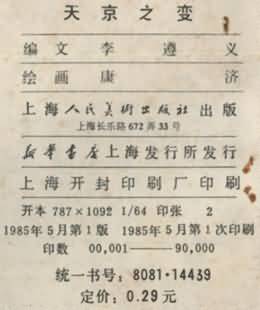 天京之变
编文李遵义
绘画康济
上海人民美術出版社出版
上海长乐路672弄33号
新华書店上海发行所发行
上海开封印刷厂印刷
开本 787×1092 1/64 印张 2
1985年5月第1版 1985年5月第1次印刷
印数 00,001——90,000
统一书号：8081·14439
定价：0.29元